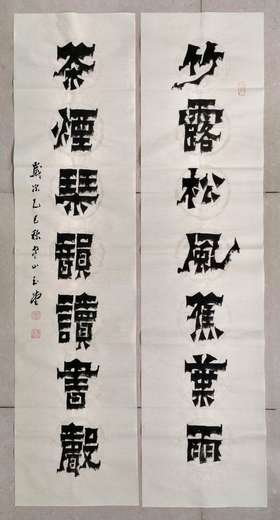 竹露松風蕉葉雨
茶煙琴韻讀書聲
歲次乙巳秋